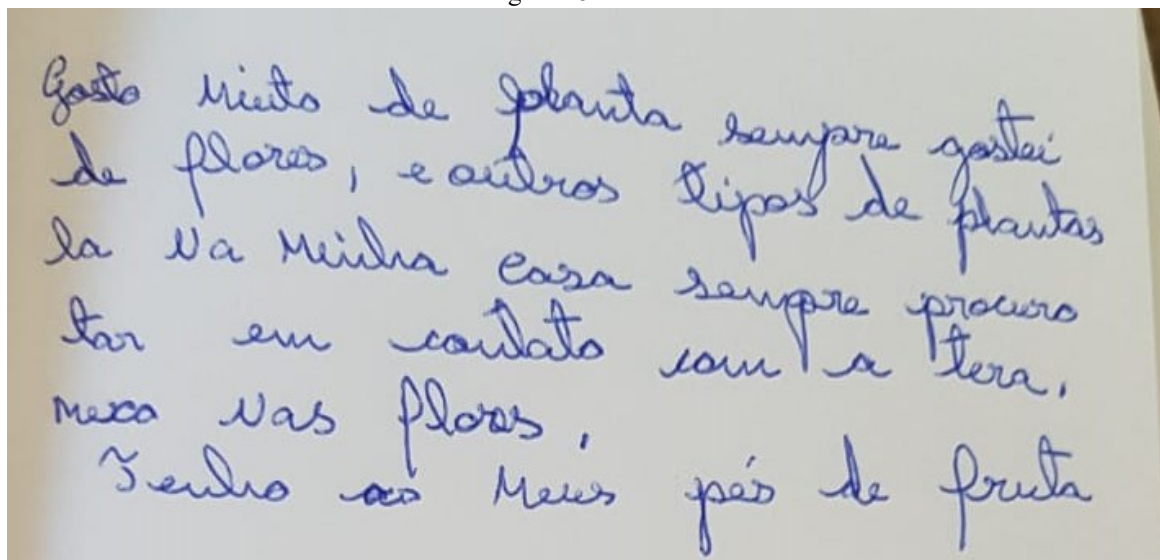 Gosto muito de planta sempre gostei
de flores, e outros tipos de plantas
la na minha casa sempre procuro
tar em contato com a tera,
mexo nas flores,
Tenho os meus pés de fruta